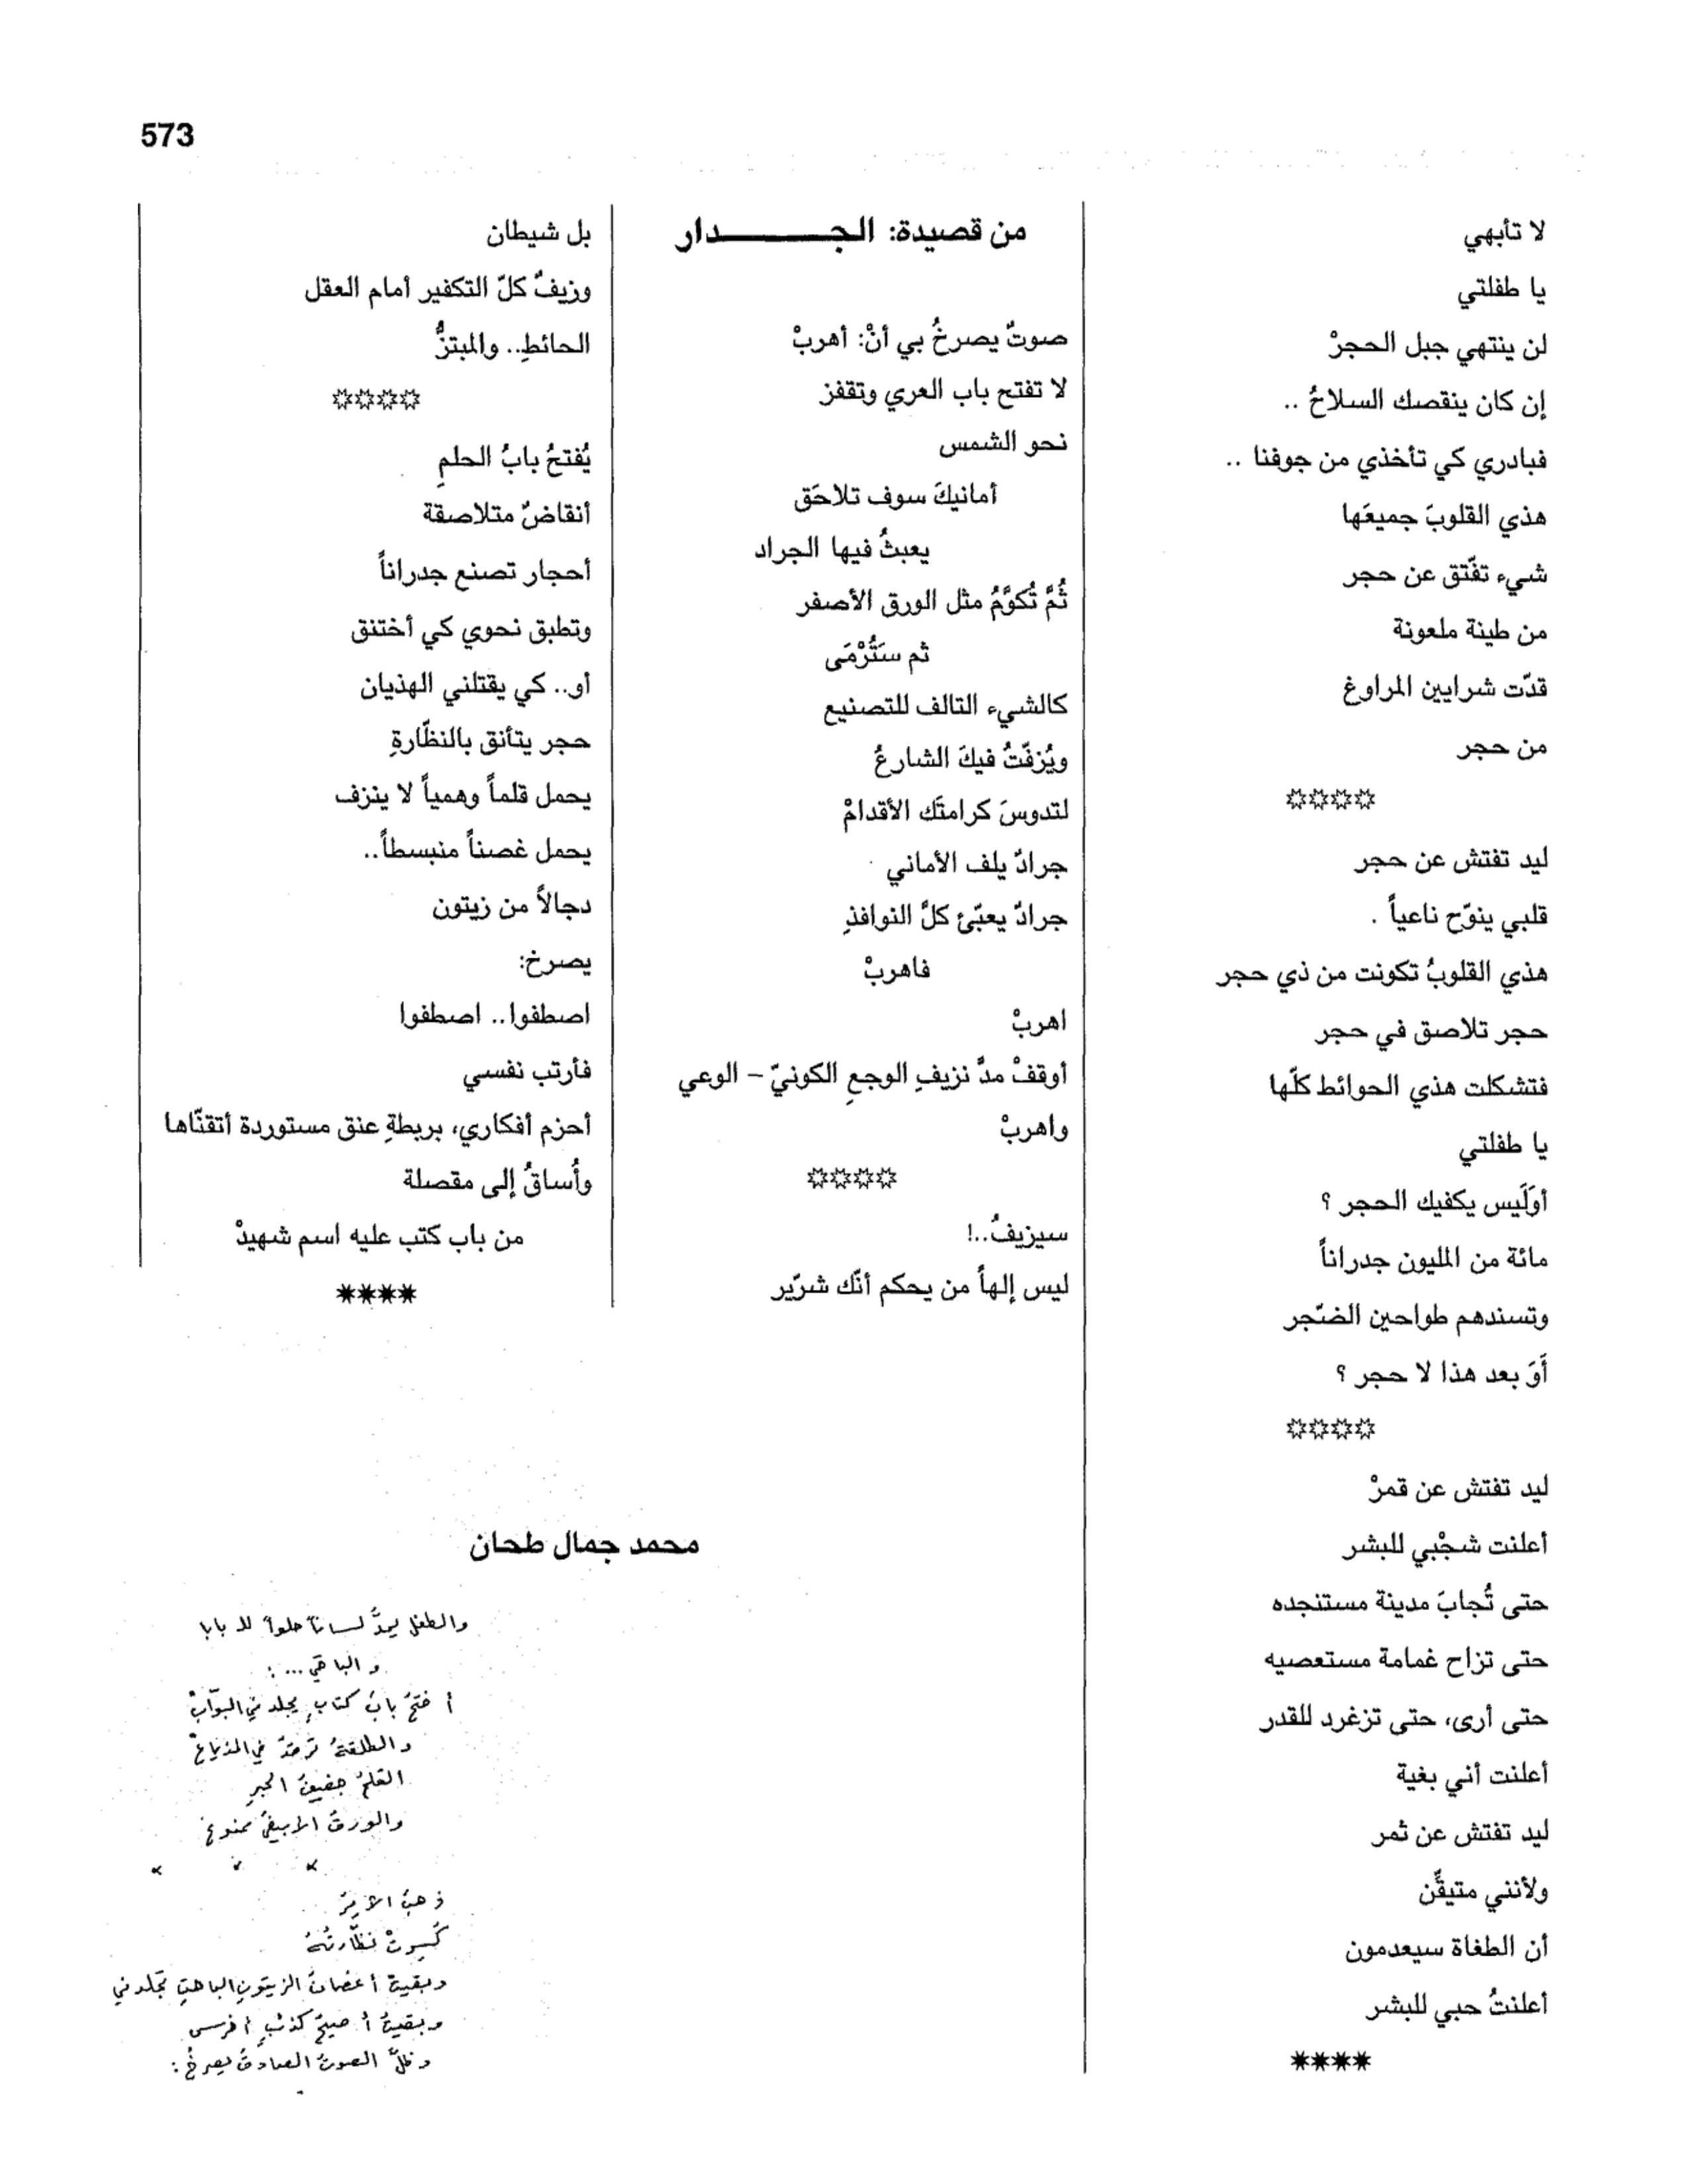 573
لا تأبهي
يا طفلتي
لن ينتهي جبل الحجرْ
إن كان ينقصك السلاحُ ..
فبادري كي تأخذي من جوفنا ..
هذي القلوبَ جميعَها
شيء تفّتق عن حجر
من طينة ملعونة
قدّت شرايين المراوغ
من حجر
☼☼☼☼
ليد تفتش عن حجر
قلبي ينوّح ناعياً .
هذي القلوبُ تكونت من ذي حجر
حجر تلاصق في حجر
فتشكلت هذي الحوائط كلّها
يا طفلتي
أوَلَيس يكفيك الحجر ؟
مائة من المليون جدراناً
وتسندهم طواحين الضّجر
أَوَ بعد هذا لا حجر ؟
☼☼☼☼
ليد تفتش عن قمرْ
أعلنت شجْبي للبشر
حتى تُجابَ مدينة مستنجده
حتى تزاح غمامة مستعصيه
حتى أرى، حتى تزغرد للقدر
أعلنت أني بغية
ليد تفتش عن ثمر
ولأنني متيقّن
أن الطغاة سيعدمون
أعلنتُ حبي للبشر
****
من قصيدة: الجـــــــدار
صوتٌ يصرخُ بي أنْ: أهربْ
لا تفتح باب العري وتقفز
نحو الشمس
أمانيكَ سوف تلاحَق
يعبثُ فيها الجراد
ثُمَّ تُكوَّمُ مثل الورق الأصفر
ثم ستُرْمَى
كالشيء التالف للتصنيع
ويُزفّتُ فيكَ الشارعُ
لتدوسَ كرامتَك الأقدامْ
جرادٌ يلف الأماني
جرادٌ يعبّئ كلَّ النوافذِ
فاهربْ
اهربْ
أوقفْ مدَّ نزيفِ الوجعِ الكونيّ – الوعي
واهربْ
☼☼☼☼
سيزيفُ..!
ليس إلهاً من يحكم أنّك شرّير
بل شيطان
وزيفٌ كلّ التكفير أمام العقل
الحائطِ.. والمبتزُّ
☼☼☼☼
يُفتحُ بابُ الحلمِ
أنقاضٌ متلاصقة
أحجار تصنع جدراناً
وتطبق نحوي كي أختنق
أو.. كي يقتلني الهذيان
حجر يتأنق بالنظّارةِ
يحمل قلماً وهمياً لا ينزف
يحمل غصناً منبسطاً..
دجالاً من زيتون
يصرخ:
اصطفوا.. اصطفوا
فأرتب نفسي
أحزم أفكاري، بربطةِ عنق مستوردة أتقنّاها
وأُساقُ إلى مقصلة
من باب كتب عليه اسم شهيدْ
****
محمد جمال طحان
والطفل يمدُّ لساناً حلواً للبابا
و الباقي ... :
أفتحُ بابَ كتابٍ يجلدني البوّابْ
والطلقةُ في المذياعْ
القلمُ الحبرِ
والورقُ الأبيضُ ممنوع
ذهبَ الآمِرُ
كُسِرتْ نظّارتُهُ
وبقيتْ أغصانُ الزيتونِ الباهتِ تجلدني
وبقيتُ أصيحُ كذئبٍ أخرس
وظلَّ الصوتُ الصادقُ يصرخُ :